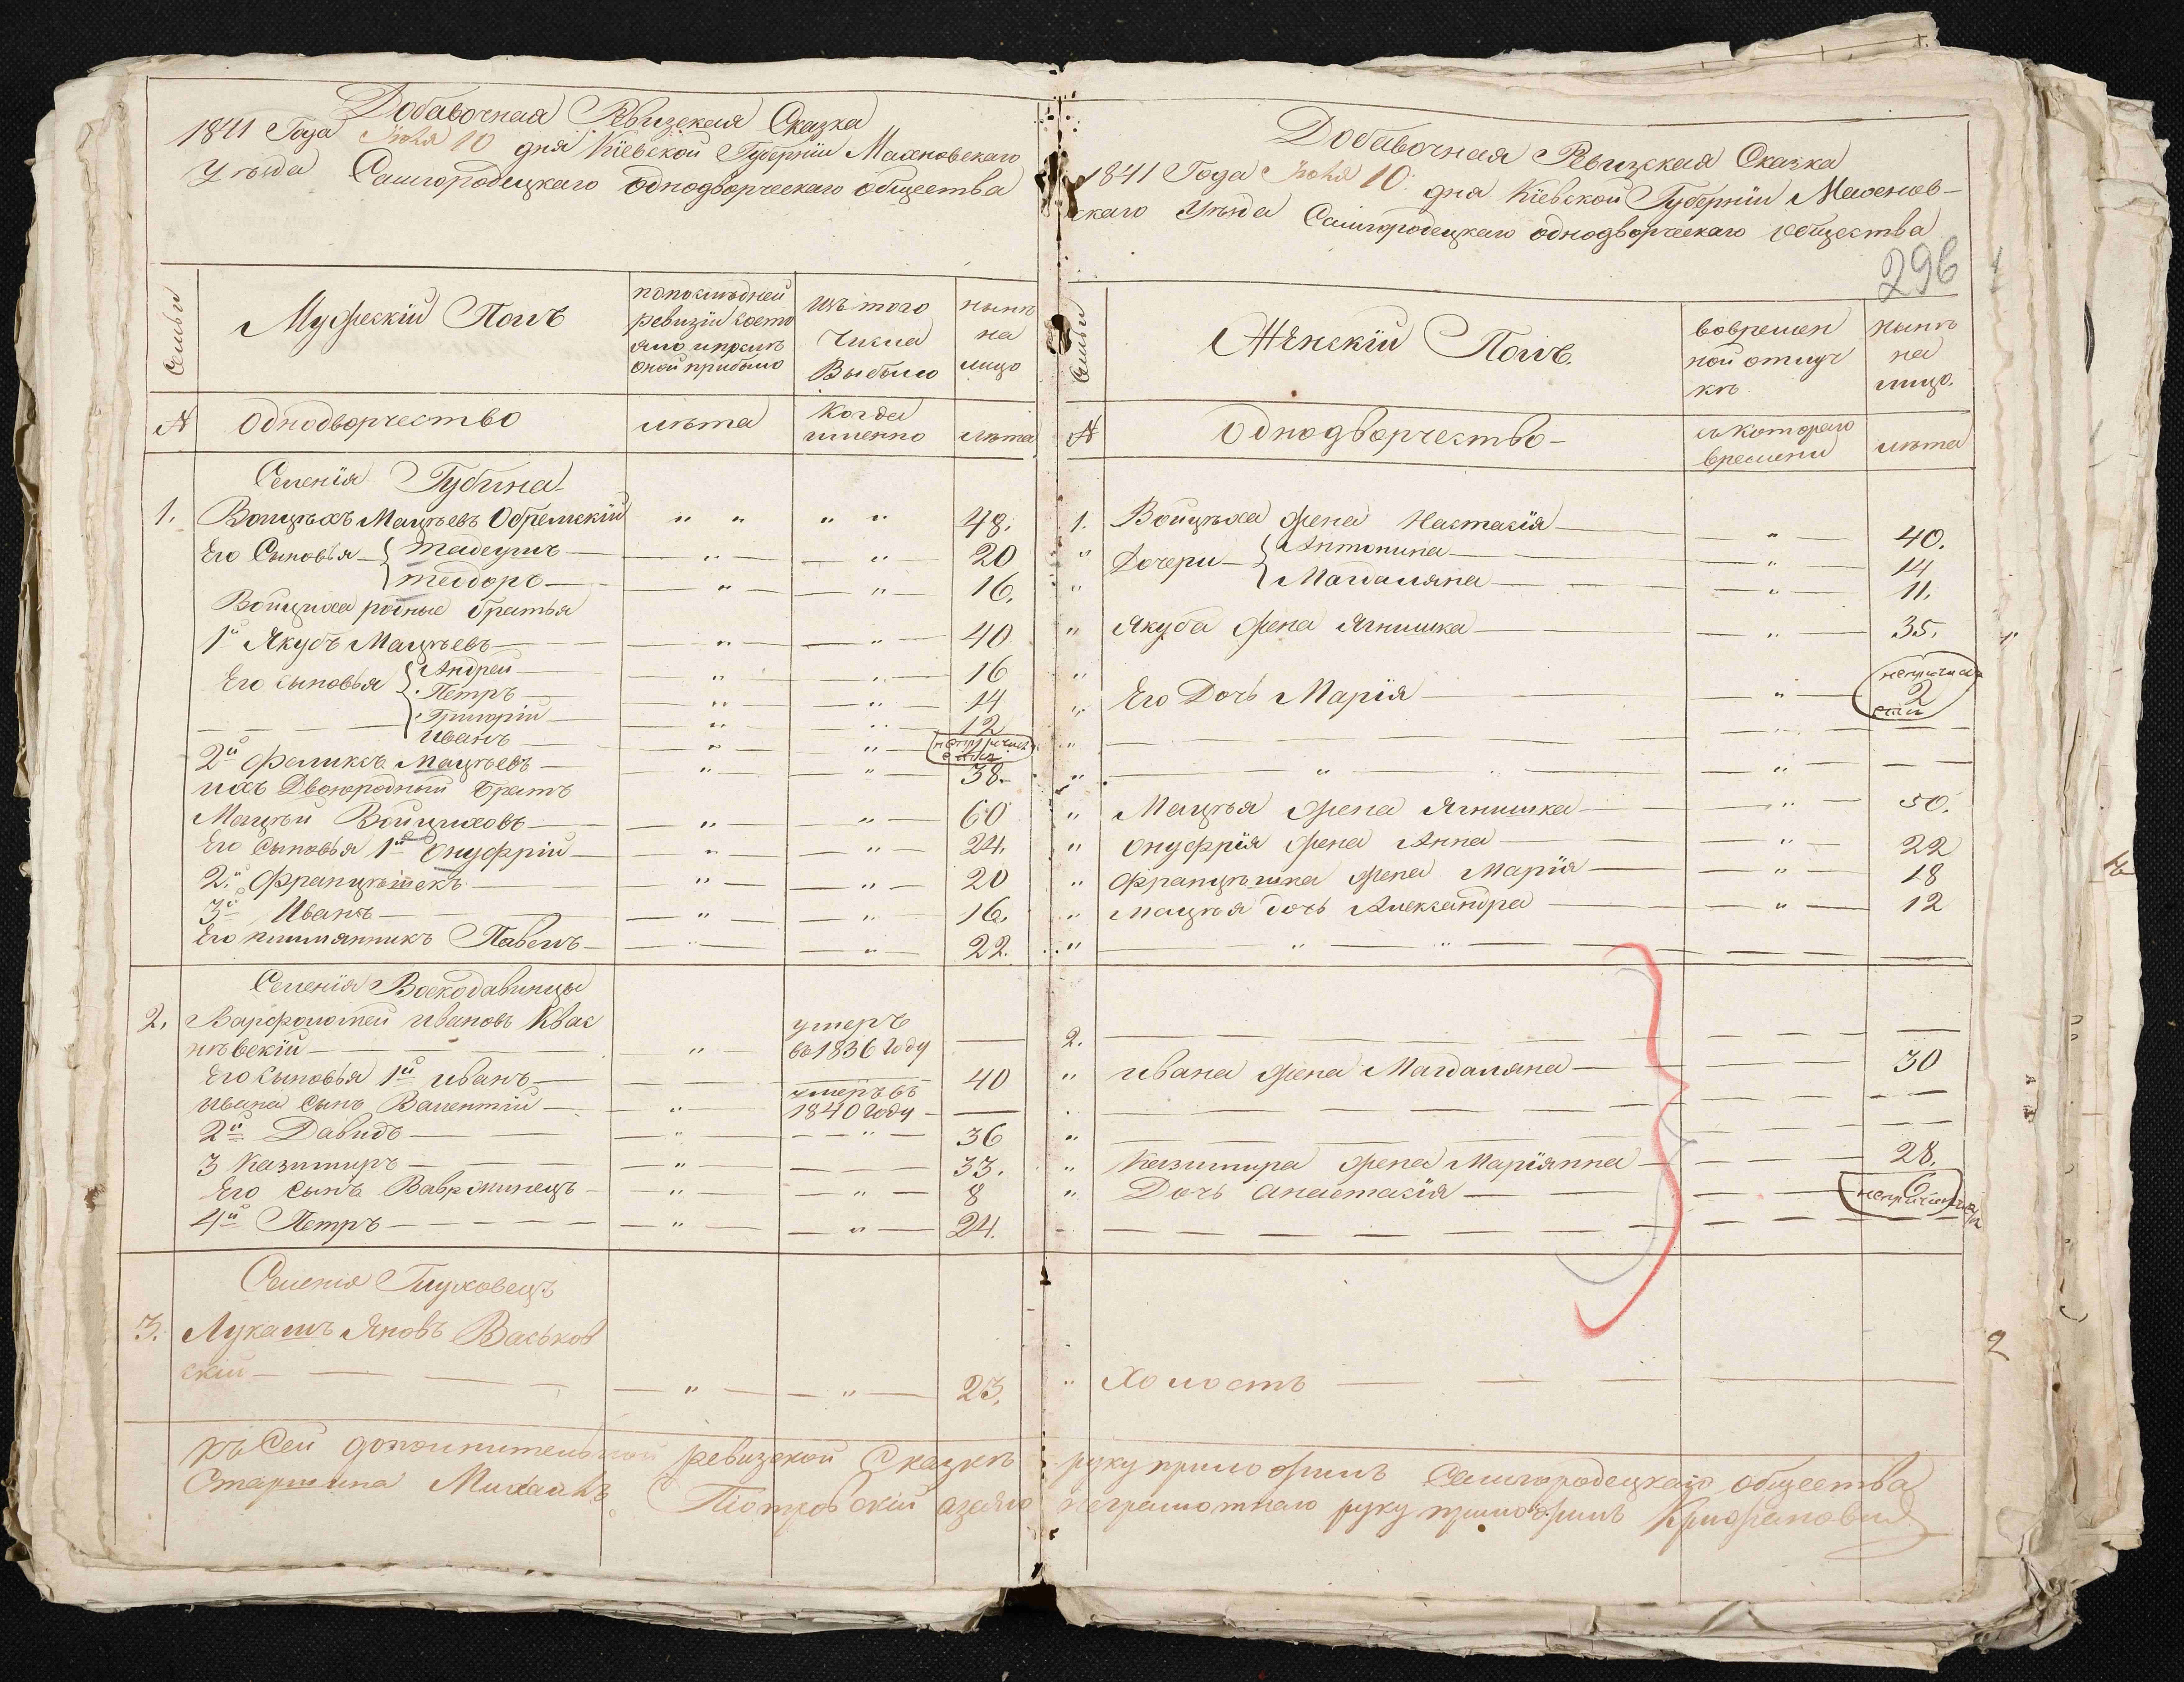 Добавочная Рѣвизская Сказка
1841 Года Июля 10 дня Кіевской Губерніи Махновскаго
Уѣзда Самгородецкаго однодворческаго общества
Семьи
Мужескій Полъ
по послѣдней ревизіи состояло и послѣ оной прибыло
изъ того числа выбыло
нынѣ на лицо
№
Однодворчество
лѣта
когда именно
лѣта
Селенія Губина
1. Войцѣхъ Мацѣевъ Обремскій " " " " 48.
Его Сыновья Тадеушъ " " 20
Теодоръ " " 16.
Войцѣха родные братья
1й Якубъ Мацѣевъ " " 40
Его сыновья Андрей " " 16
Петръ " " 14
Григорій " " 12
Иванъ " "
2й Феликсъ Мацѣевъ " " 38.
ихъ Двоюродный братъ
Мацѣй Войцѣховъ " " 60
Его Сыновья 1й Онуфрій " " 24.
2й Францѣшекъ " " 20
3й Иванъ " " 16.
Его племянникъ Павелъ " " 22.
Селенія Воскодавинцы
2. Варфоломей Ивановъ Квас
нѣвскій " умеръ во 1836 году —
Его Сыновья 1й Иванъ 40
Ивана сынъ Валентій " умеръ въ 1840 году —
2й Давидъ " " 36
3 Казимиръ " 33.
Его сынъ Вавржинецъ " " 8
4й Петръ " " 24.
Селенія Глуховецъ
3. Лукашъ Яновъ Васьков
скій " " 23.
Къ Сей дополнительной ревизской Сказкѣ
Старшина Михаилъ Піотровскій а за его
Добавочная Рѣвизская Сказка
1841 Года Июля 10 дня Кіевской Губерніи Махнов-
скаго Уѣзда Самгородецкаго однодворческаго общества
296
Семьи
Женскій Полъ
во временной отлучкѣ
нынѣ на лицо.
№
Однодворчество
съ котораго времени
лѣта
1. Войцѣха жена Настасія " 40.
" Дочери Антонина " 14
" Магдаляна " 11.
" Якуба жена Ягнишка " 35.
"
" Его Дочь Марія " 2
"
" "
" Мацѣя жена Ягнишка " 50.
" Онуфрія жена Анна " 22
" Францѣшка жена Марія " 18
" Мацѣя дочь Александра " 12
" " "
2.
" Ивана жена Магдаляна 30
"
" Казимира жена Маріянна 28.
" Дочь Анастасія 6
" Холостъ
руку приложилъ Самгородецкаго общества
неграмотнаго руку приложилъ
2